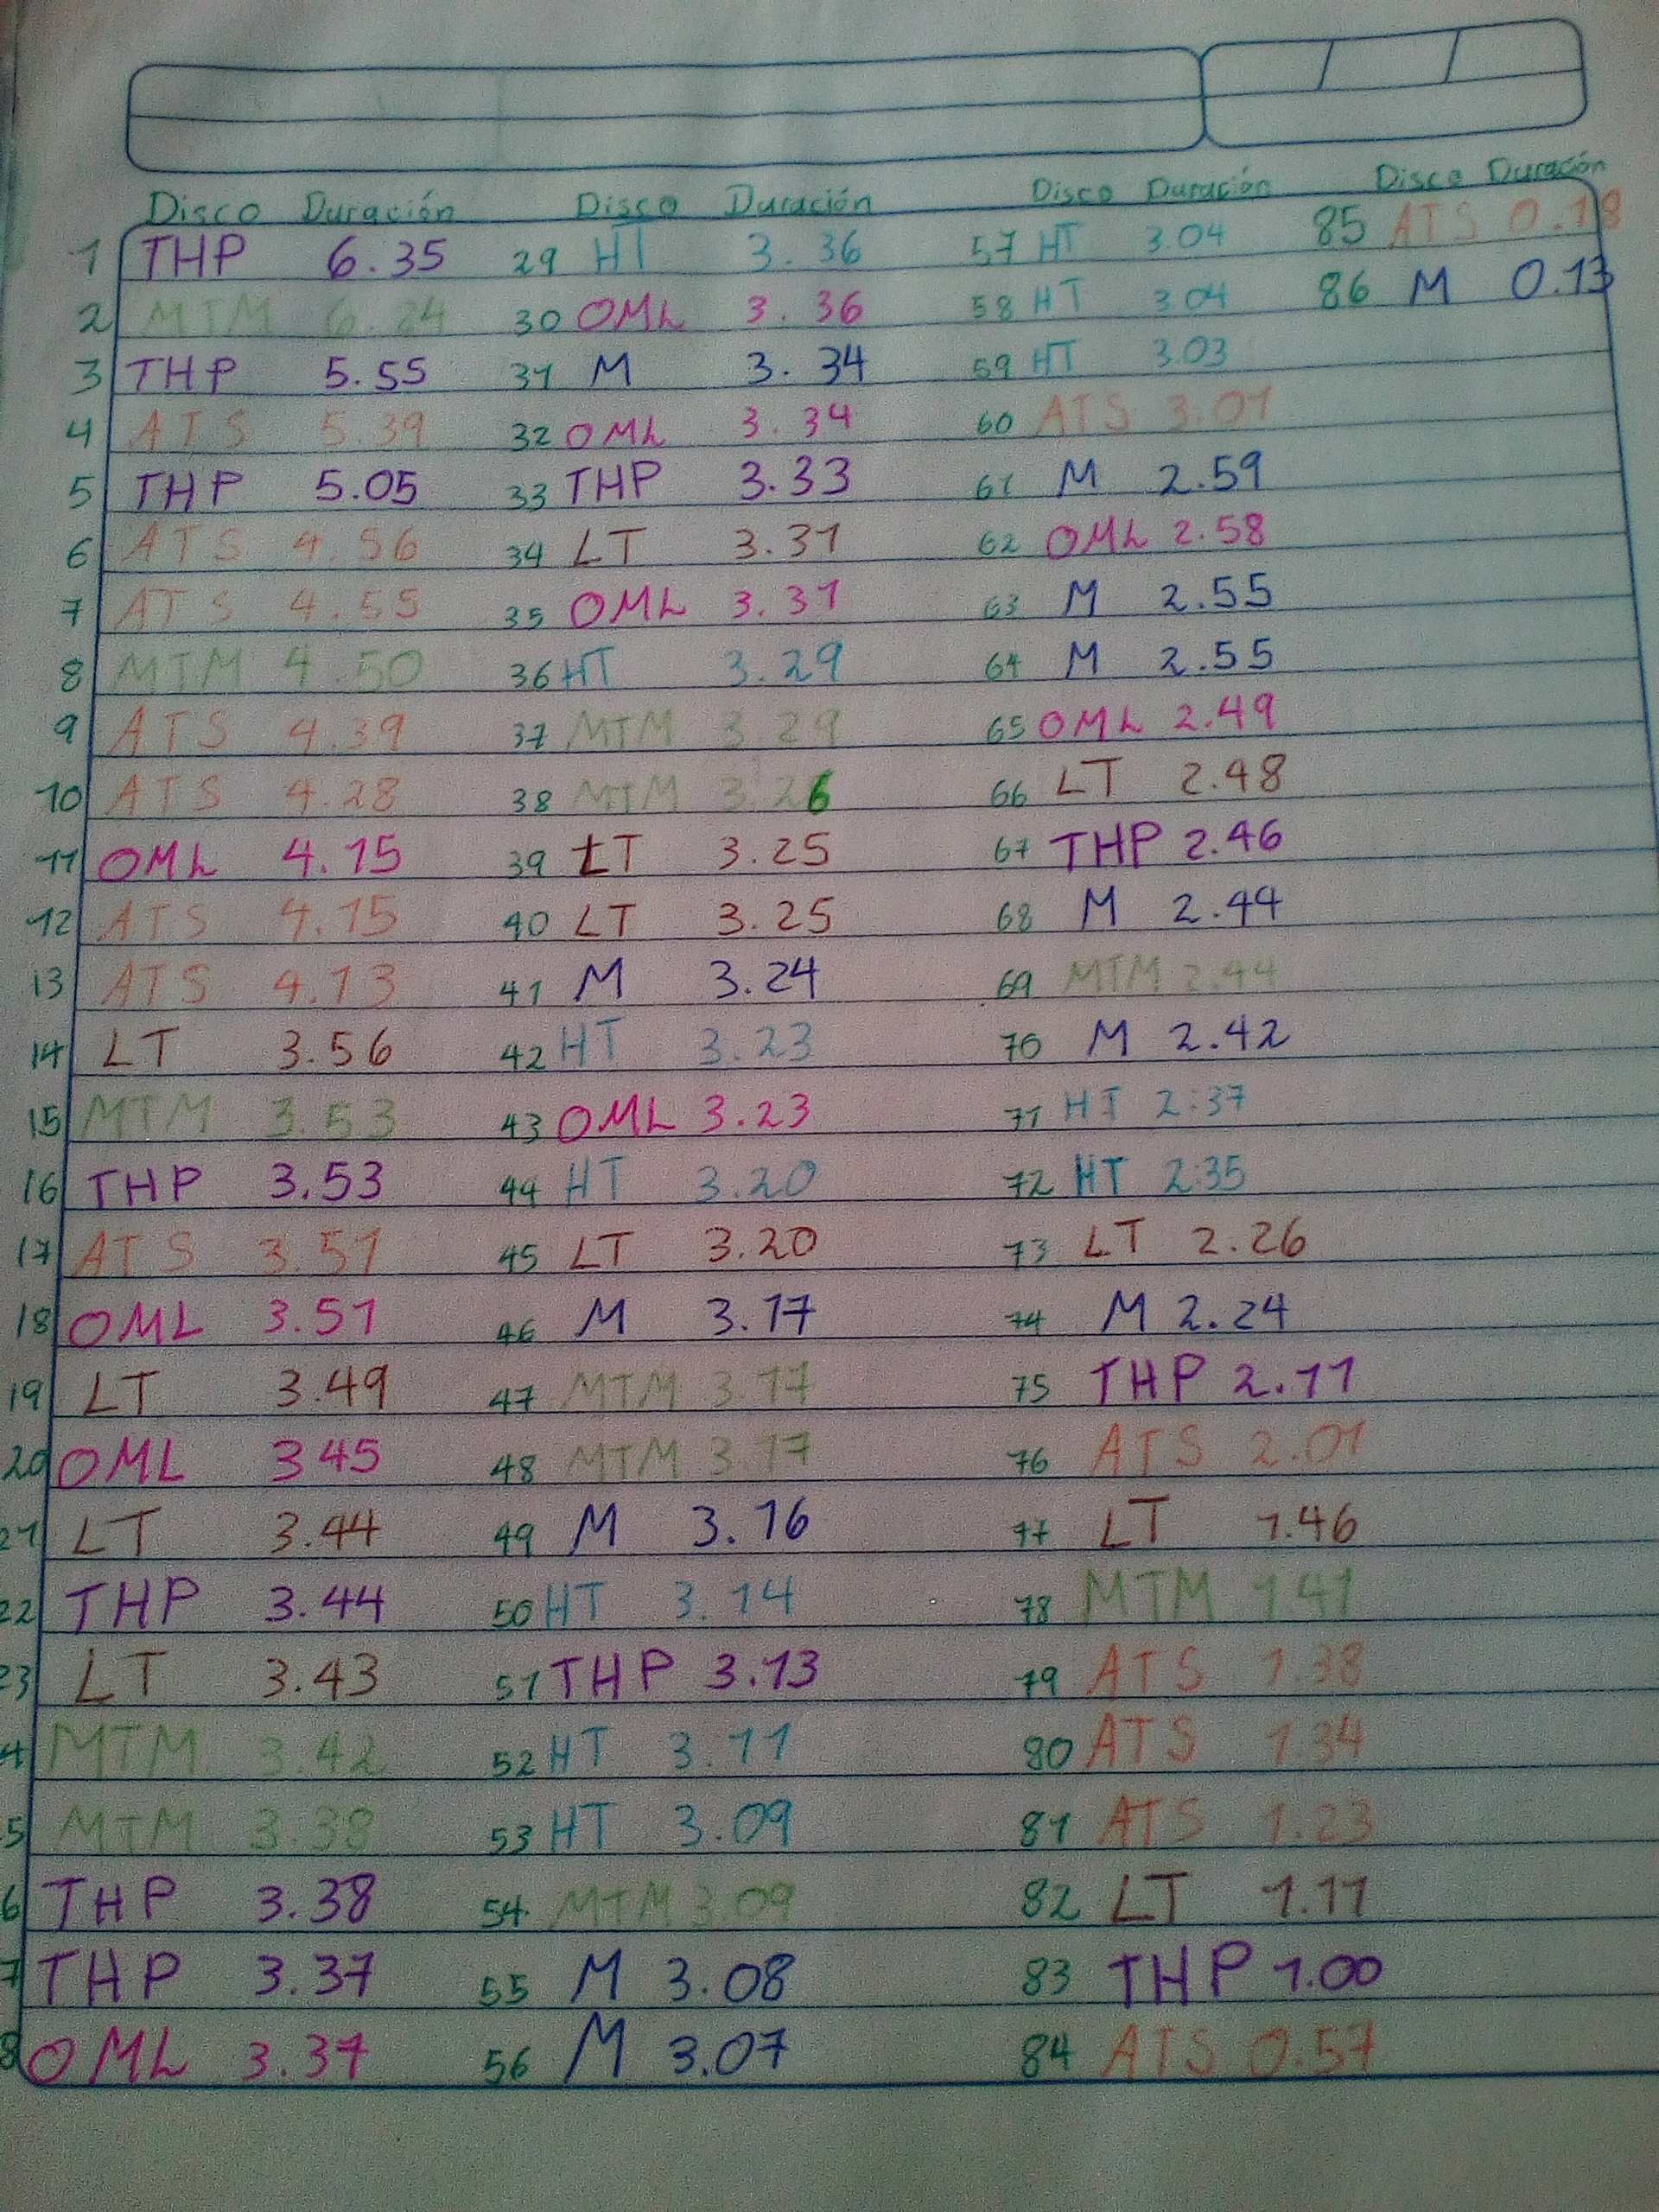 Disco Duración
1 THP 6.35
2 MTM 6.24
3 THP 5.55
4 ATS 5.39
5 THP 5.05
6 ATS 4.56
7 ATS 4.55
8 MTM 4.50
9 ATS 4.39
10 ATS 4.28
11 OML 4.15
12 ATS 4.15
13 ATS 4.13
14 LT 3.56
15 MTM 3.53
16 THP 3.53
17 ATS 3.51
18 OML 3.51
19 LT 3.49
20 OML 3 45
21 LT 3.44
22 THP 3.44
23 LT 3.43
4 MTM 3.42
5 MTM 3.38
6 THP 3.38
7 THP 3.37
8 OML 3.37
Disco Duración
29 HT 3.36
30 OML 3.36
31 M 3.34
32 OML 3.34
33 THP 3.33
34 LT 3.31
35 OML 3.31
36 HT 3.29
37 MTM 3.29
38 MTM 3.26
39 LT 3.25
40 LT 3.25
41 M 3.24
42 HT 3.23
43 OML 3.23
44 HT 3.20
45 LT 3.20
46 M 3.17
47 MTM 3.17
48 MTM 3.17
49 M 3.16
50 HT 3.14
51 THP 3.13
52 HT 3.11
53 HT 3.09
54 MTM 3.09
55 M 3.08
56 M 3.07
Disco Duración
57 HT 3.04
58 HT 3.04
59 HT 3.03
60 ATS 3.01
61 M 2.59
62 OML 2.58
63 M 2.55
64 M 2.55
65 OML 2.49
66 LT 2.48
67 THP 2.46
68 M 2.44
69 MTM 2.44
70 M 2.42
71 HT 2:37
72 HT 2:35
73 LT 2.26
74 M 2.24
75 THP 2.11
76 ATS 2.01
77 LT 1.46
78 MTM 1 41
79 ATS 1.38
80 ATS 1.34
81 ATS 1.23
82 LT 1.11
83 THP 1.00
84 ATS 0.57
Disco Duración
85 ATS 0.18
86 M 0.13